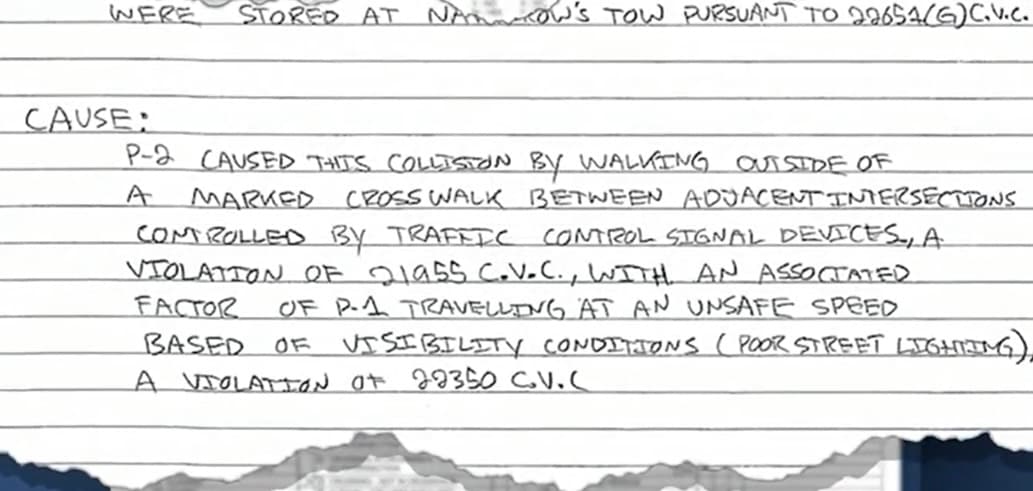 WERE STORED AT TOW PURSUANT TO 22651(G) C.V.C.
CAUSE:
P-2 CAUSED THIS COLLISION BY WALKING OUTSIDE OF
A MARKED CROSSWALK BETWEEN ADJACENT INTERSECTIONS
CONTROLLED BY TRAFFIC CONTROL SIGNAL DEVICES, A
VIOLATION OF 21955 C.V.C., WITH AN ASSOCIATED
FACTOR OF P-1 TRAVELLING AT AN UNSAFE SPEED
BASED OF VISIBILITY CONDITIONS (POOR STREET LIGHTING),
A VIOLATION OF 22350 C.V.C